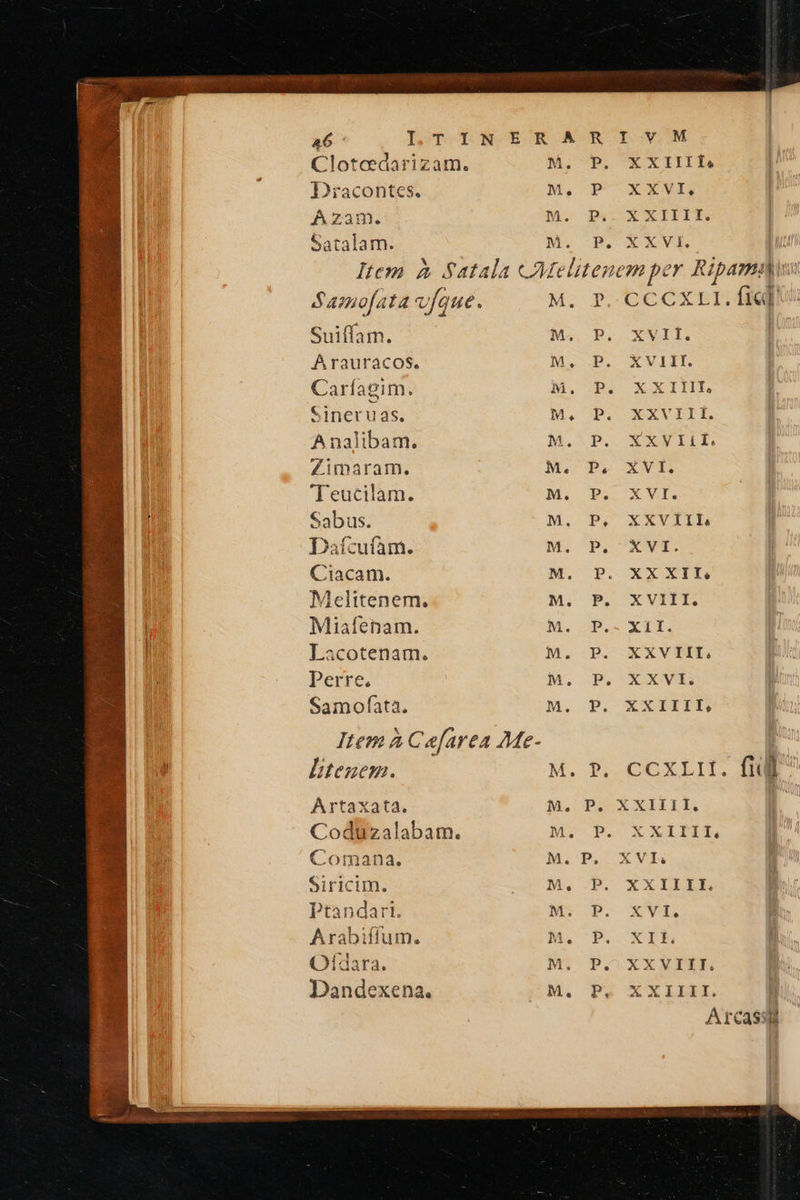 46 ITINERARIVM
Clotœdarizam. M. P. XXIIII.
Dracontes. M. P XXVI.
Azam. M. P. XXIIII.
Satalam. M. P. XXVI.
Item à Satala Melitenem per Ripam
Samoſata vſque. M. P. CCCXLI. ſic
Suiſſam. M. P. XVII.
Arauracos. M. P. XVIII.
Carſagim. M. P. XXIIII.
Sineruas. M. P. XXVIII.
Analibam. M. P. XXVIII.
Zimaram. M. P. XVI.
Teucilam. M. P. XVI.
Sabus. M. P. XXVIII.
Daſcuſam. M. P. XVI.
Ciacam. M. P. XXXII.
Melitenem. M. P. XVIII.
Miaſenam. M. P. XII.
Lacotenam. M. P. XXVIII.
Perre. M. P. XXVI.
Samoſata. M. P. XXIIII.
Item à Cæſarea Me-
litenem. M. P. CCXLII. ſic
Artaxata. M. P. XXIIII.
Coduzalabam. M. P. XXIIII.
Comana. M. P. XVI.
Siricim. M. P. XXIIII.
Ptandari. M. P. XVI.
Arabiſſum. M. P. XII.
Oſdara. M. P. XXVIII.
Dandexena. M. P. XXIIII.
Arcas